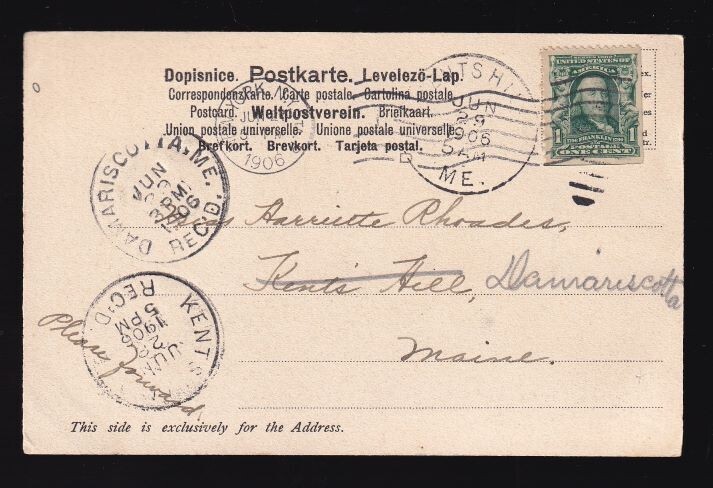 Dopisnice. Postkarte. Levelezö-Lap.
Correspondenzkarte. Carte postale. Cartolina postale.
Postcard. Weltpostverein. Briefkaart.
Union postale universelle. Unione postale universelle.
Brefkort. Brevkort. Tarjeta postal.
NEW YORK, N.Y.
JUN
1906
NTS HI
JUN
29
1906
5 AM
ME.
UNITED STATES OF AMERICA
FRANKLIN
1 1
POSTAGE
ONE CENT
DAMARISCOTTA, ME.
JUN
3 PM
1906
REC'D.
Miss Harriette Rhoades,
Kents Hill, Damariscotta
Maine.
KENTS
JUN
28
1906
5 PM
REC'D
Please forward.
This side is exclusively for the Address.